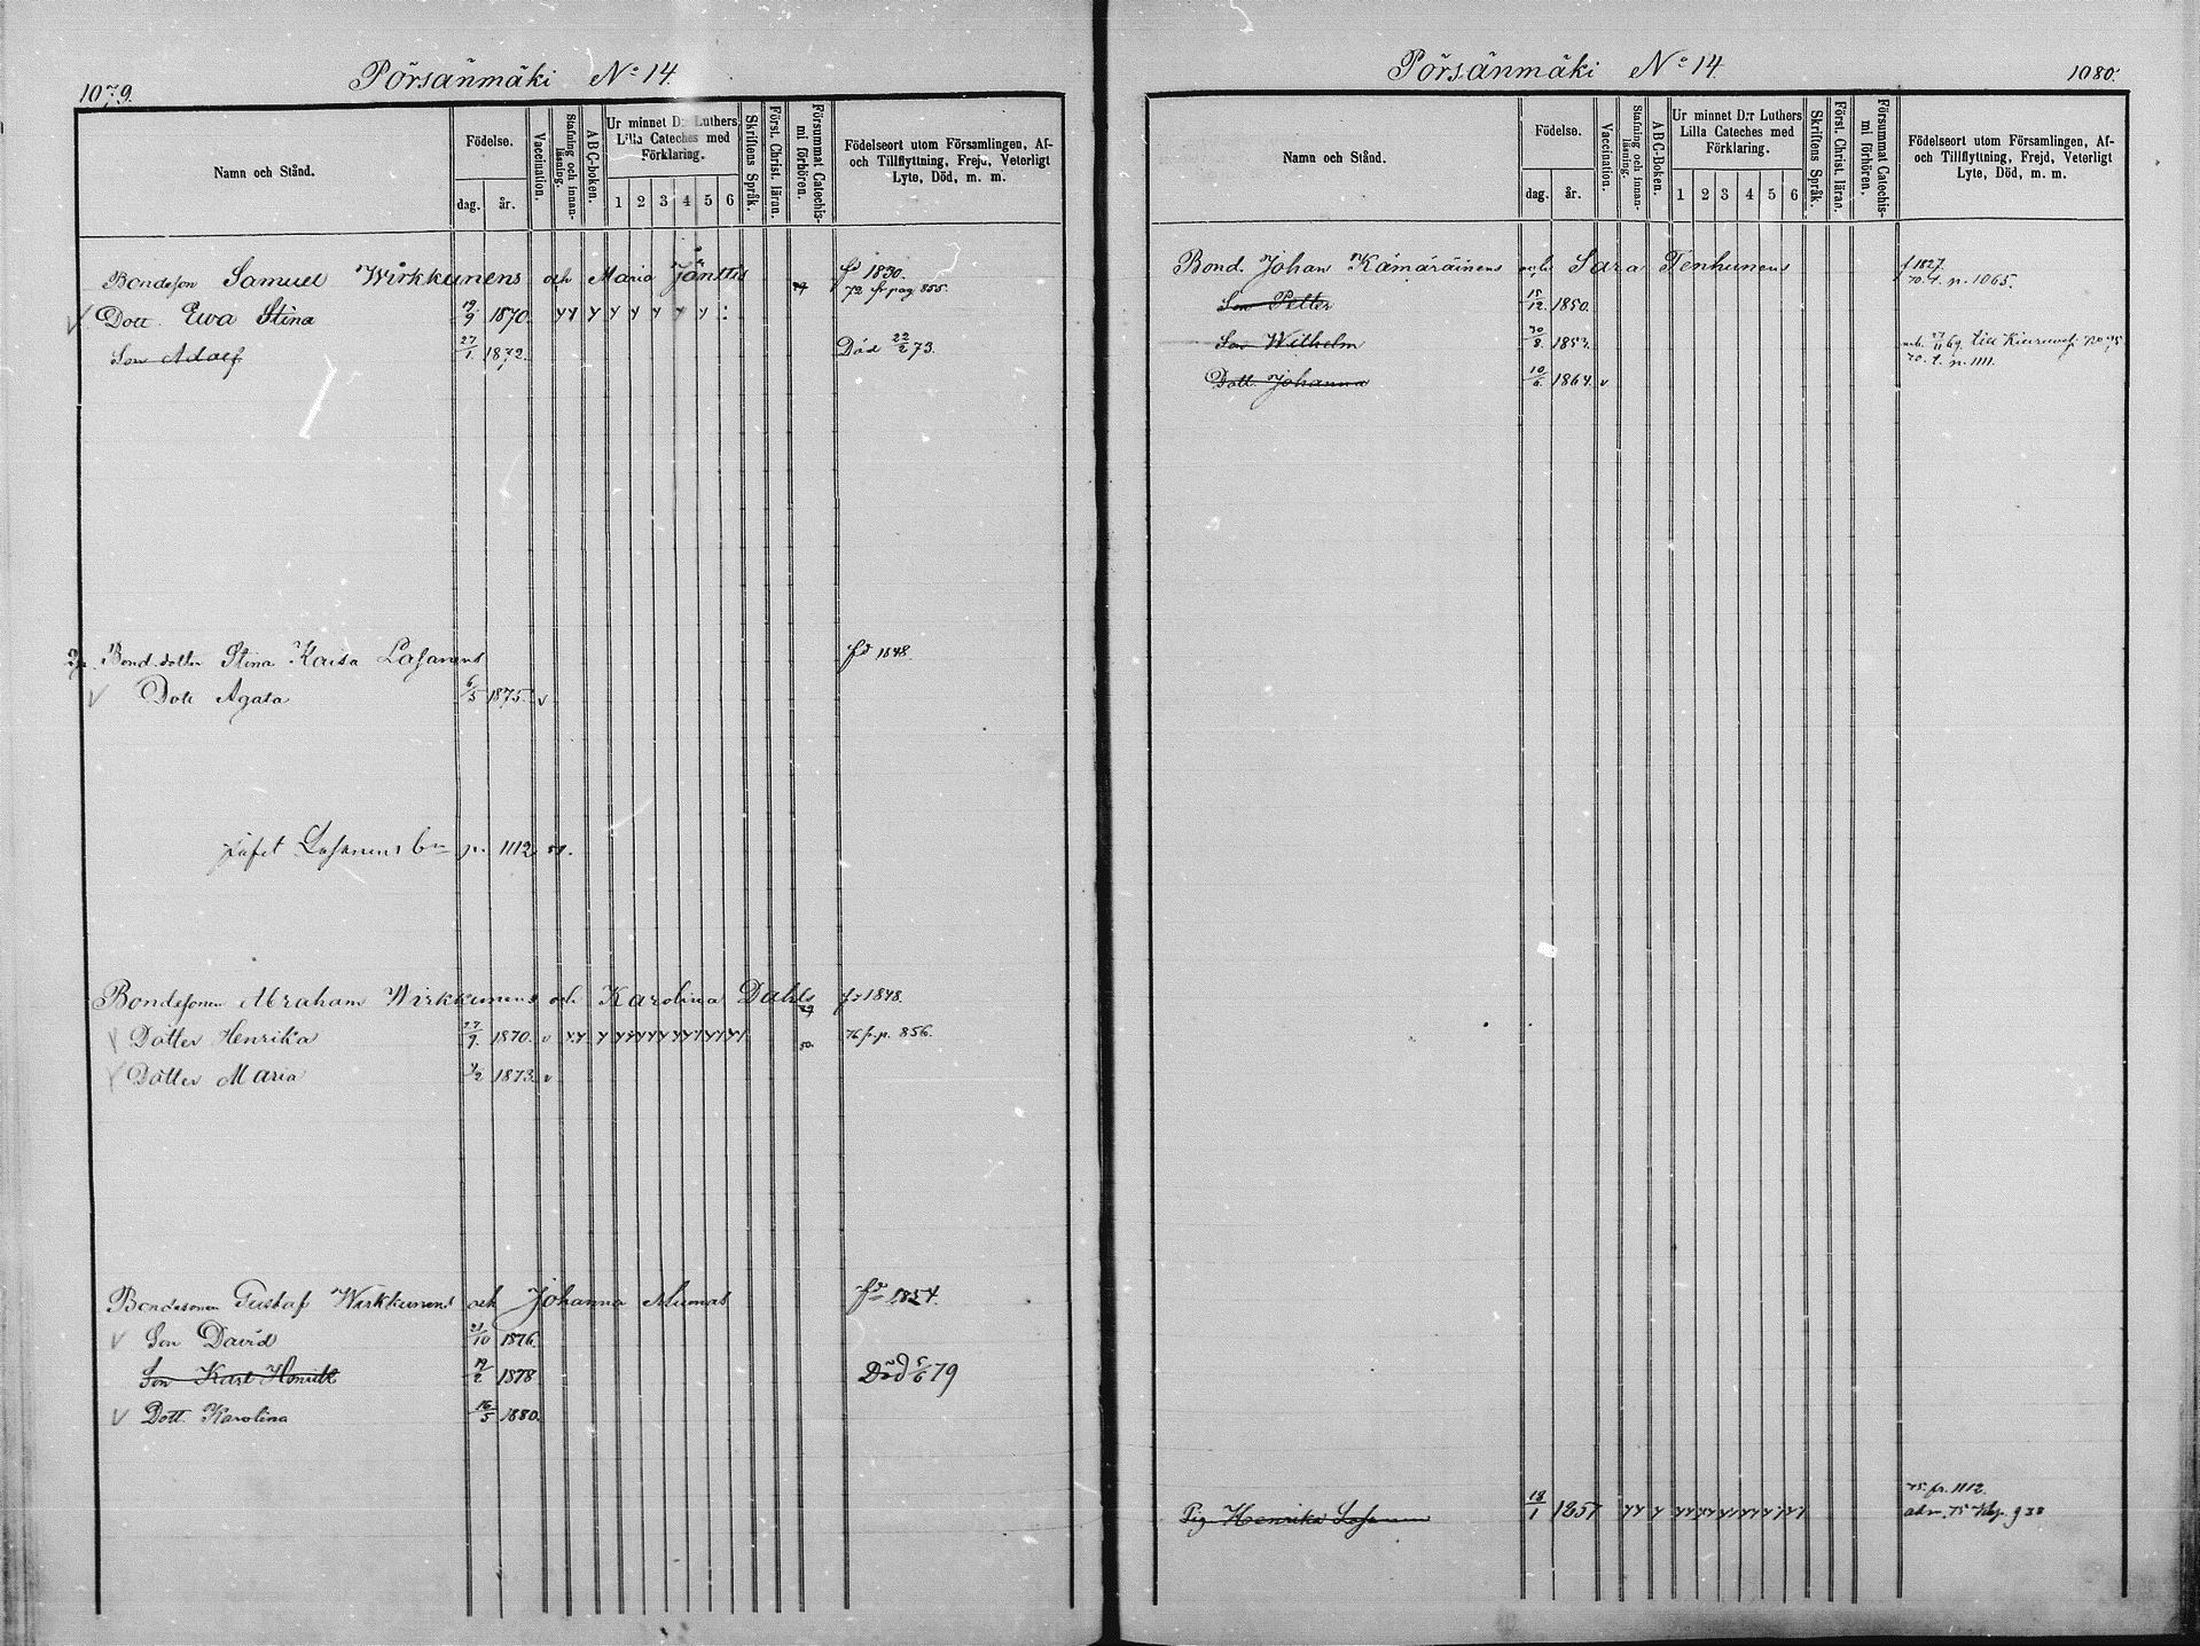 1079.
Pörsänmäki No 14.
Namn och Stånd.
Födelse.
dag. år.
Vaccination.
Stafning och innan-läsning.
ABC-boken.
Ur minnet D:r Luthers Lilla Cateches med Förklaring.
1 2 3 4 5 6
Skriftens Språk.
Först. Christ. läran.
Försummat Catechis-mi förhören.
Födelseort utom Församlingen, Af- och Tillflyttning, Frejd, Veterligt Lyte, Död, m. m.
Bondeson Samuel Wirkkunens och Maria Jänttis fd 1830.
72 fr pag 855.
Dott. Ewa Stina 19/9 1870.
Son Adolf 27/1. 1872. Död 22/2 73.
Bond.dotter Stina Kaisa Lasanens fd 1848.
Dott Agata 6/5 1875. v
Lasanens p. 1112
Bondesonen Abraham Wirkkunens och Karolina Dahls fd 1848.
Dotter Henrika 27/9. 1870. v 76 fr. p. 856.
Dotter Maria 1/2 1873. v
Bondesonen Gustaf Wirkkunens och Johanna fd 1854.
Son David 21/10 1876.
Son Karl Henrik 19/2 1878 Död 5/6 79
Dott. Karolina 16/5 1880.
Pörsänmäki No 14.
1080.
Namn och Stånd.
Födelse.
dag. år.
Vaccination.
Stafning och innan-läsning.
ABC-Boken.
Ur minnet D:r Luthers Lilla Cateches med Förklaring.
1 2 3 4 5 6
Skriftens Språk.
Först. Christ. läran.
Försummat Catechis-mi förhören.
Födelseort utom Församlingen, Af- och Tillflyttning, Frejd, Veterligt Lyte, Död, m. m.
Bond. Johan Kämäräinens och Sara Tenhunens f 1827.
70. t. p. 1065.
Son Petter 15/12. 1850.
Son Wilhelm 30/8. 1853. 69 till
70. t. p. 1111.
Dott. Johanna 10/6. 1864. v
75. fr. 1112.
Pig. Henrika 18/1 1857